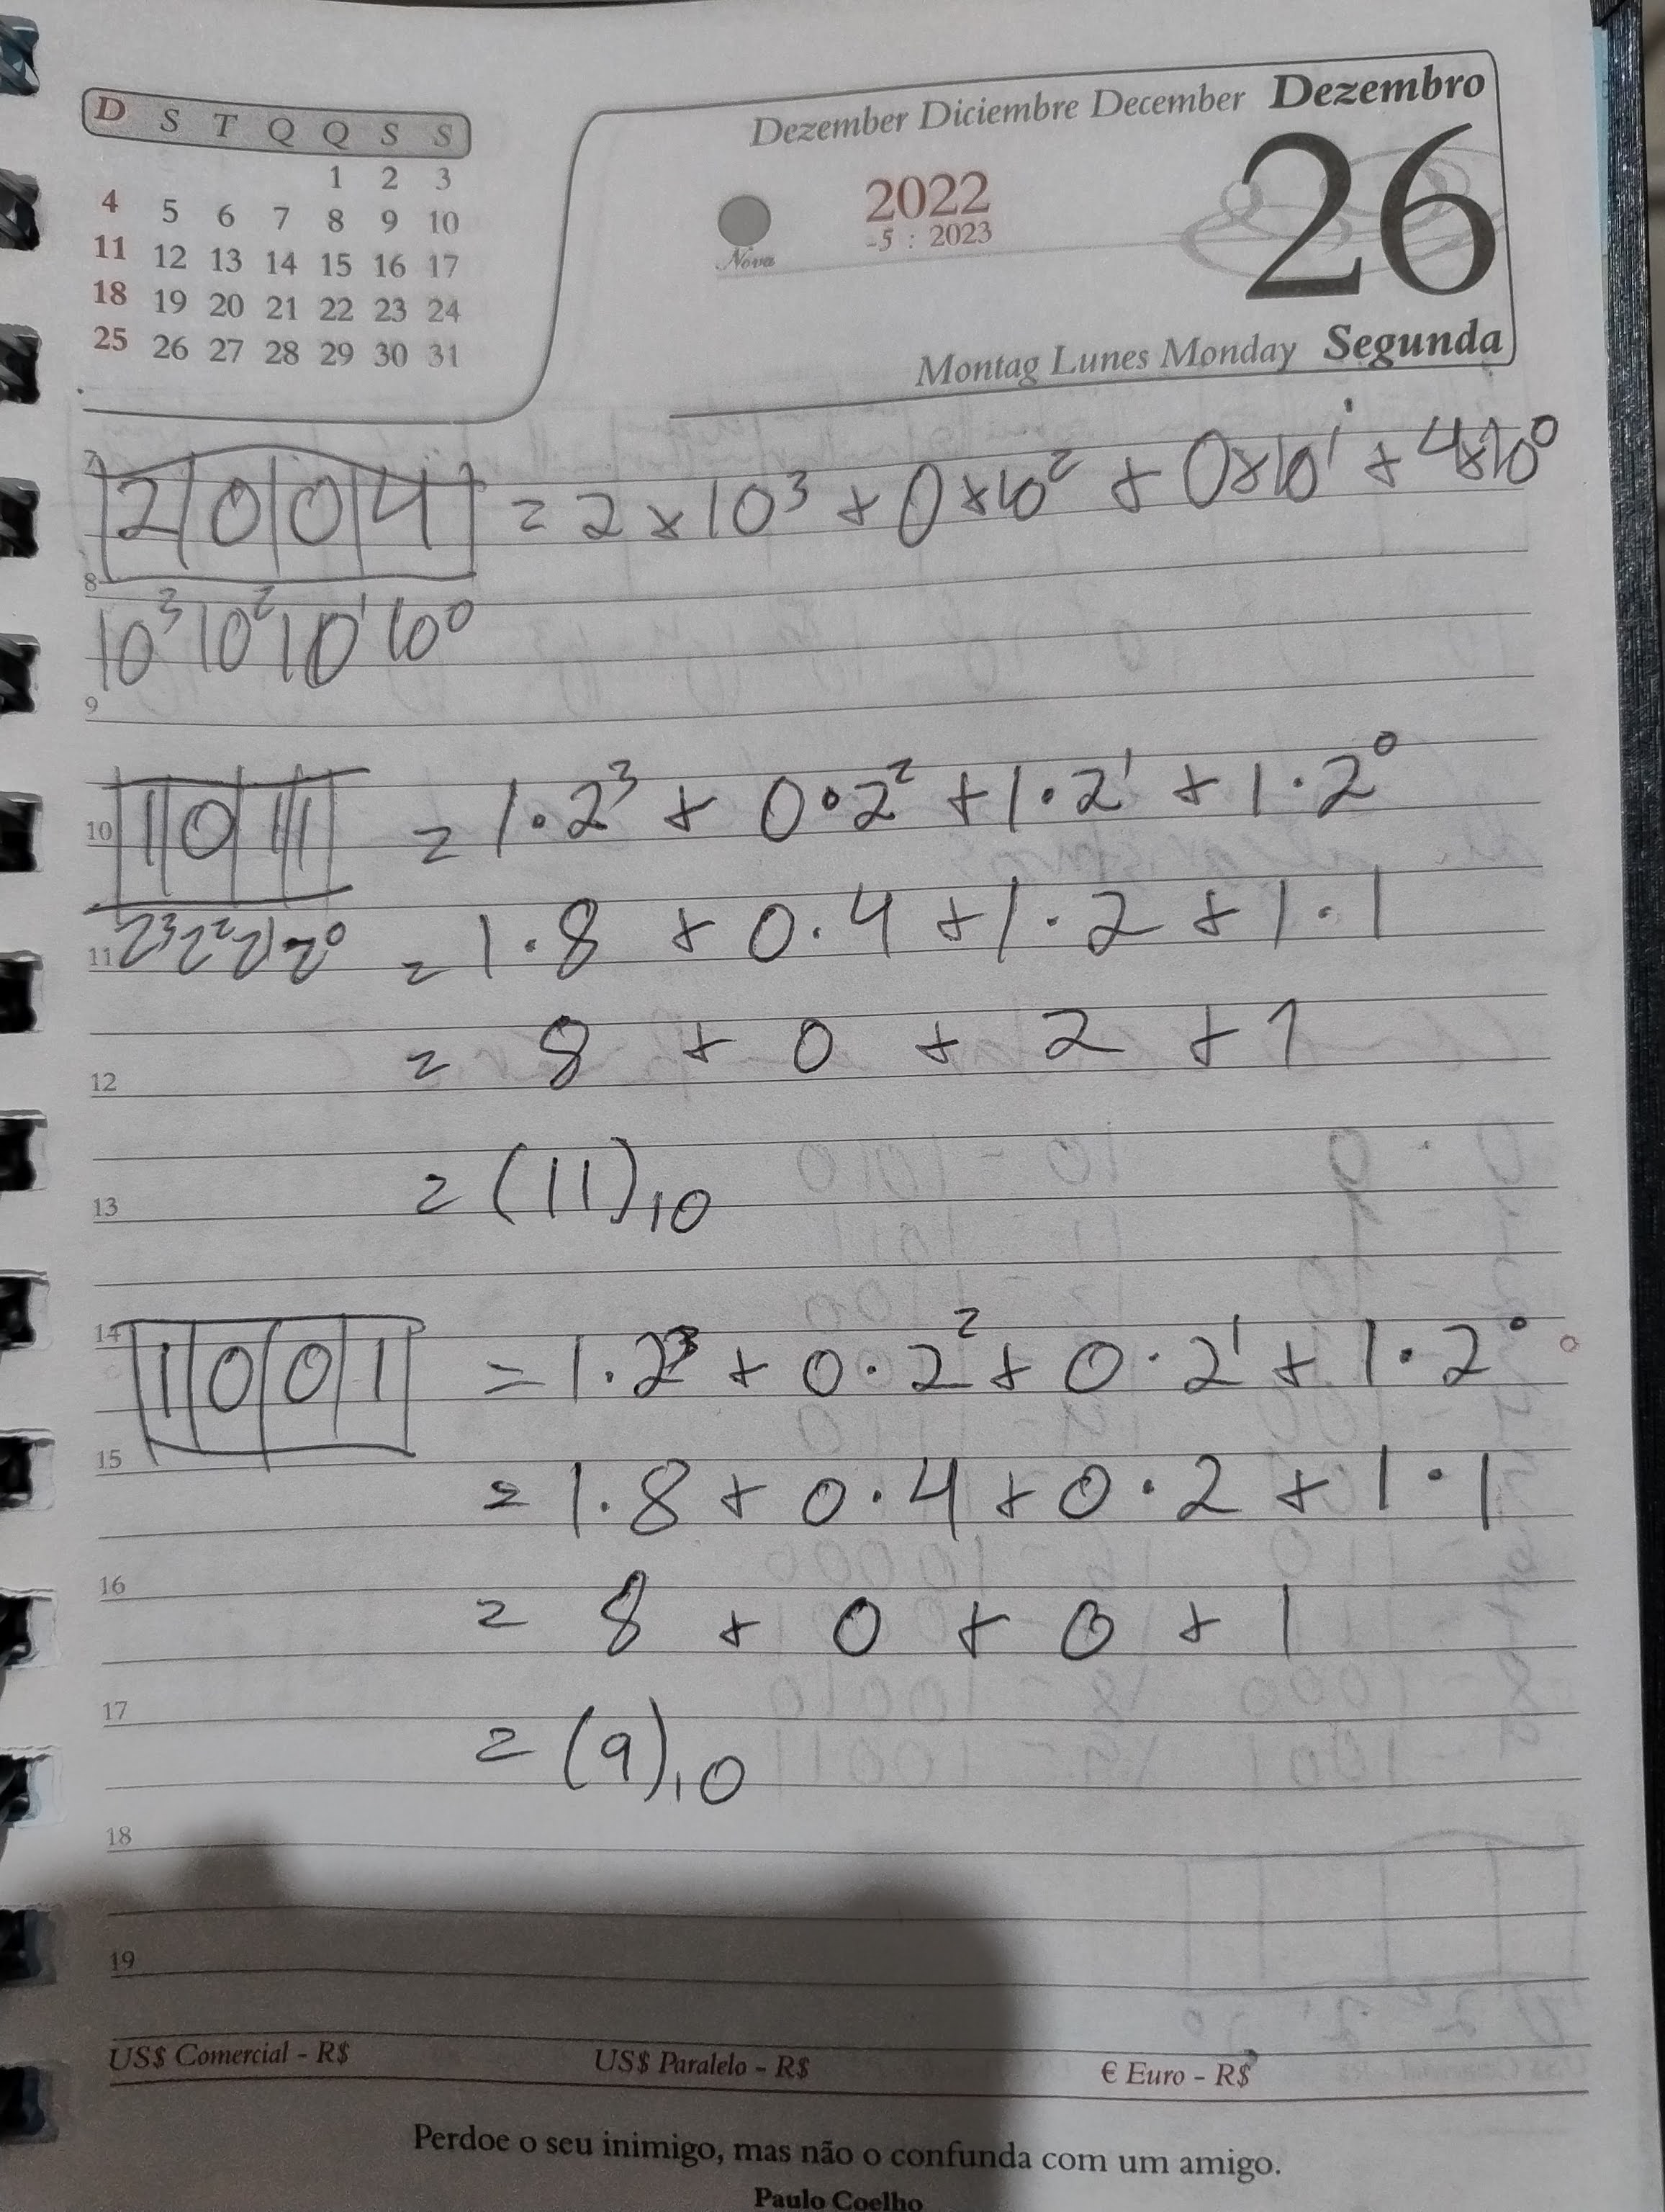 D S T Q Q S S
1 2 3
4 5 6 7 8 9 10
11 12 13 14 15 16 17
18 19 20 21 22 23 24
25 26 27 28 29 30 31
Dezember Diciembre December Dezembro
26
2022
-5 : 2023
Nova
Montag Lunes Monday Segunda
7
2 0 0 4 = 2 x 10³ + 0 x 10² + 0 x 10¹ + 4 x 10⁰
8
10³ 10² 10¹ 10⁰
9
1 0 1 1 = 1 · 2³ + 0 · 2² + 1 · 2¹ + 1 · 2⁰
10
2³ 2² 2¹ 2⁰ = 1 · 8 + 0 · 4 + 1 · 2 + 1 · 1
11
= 8 + 0 + 2 + 1
12
= (11)₁₀
13
14
1 0 0 1 = 1 · 2³ + 0 · 2² + 0 · 2¹ + 1 · 2⁰
15
= 1 · 8 + 0 · 4 + 0 · 2 + 1 · 1
16
= 8 + 0 + 0 + 1
17
= (9)₁₀
18
19
US$ Comercial - R$ US$ Paralelo - R$ € Euro - R$
Perdoe o seu inimigo, mas não o confunda com um amigo.
Paulo Coelho